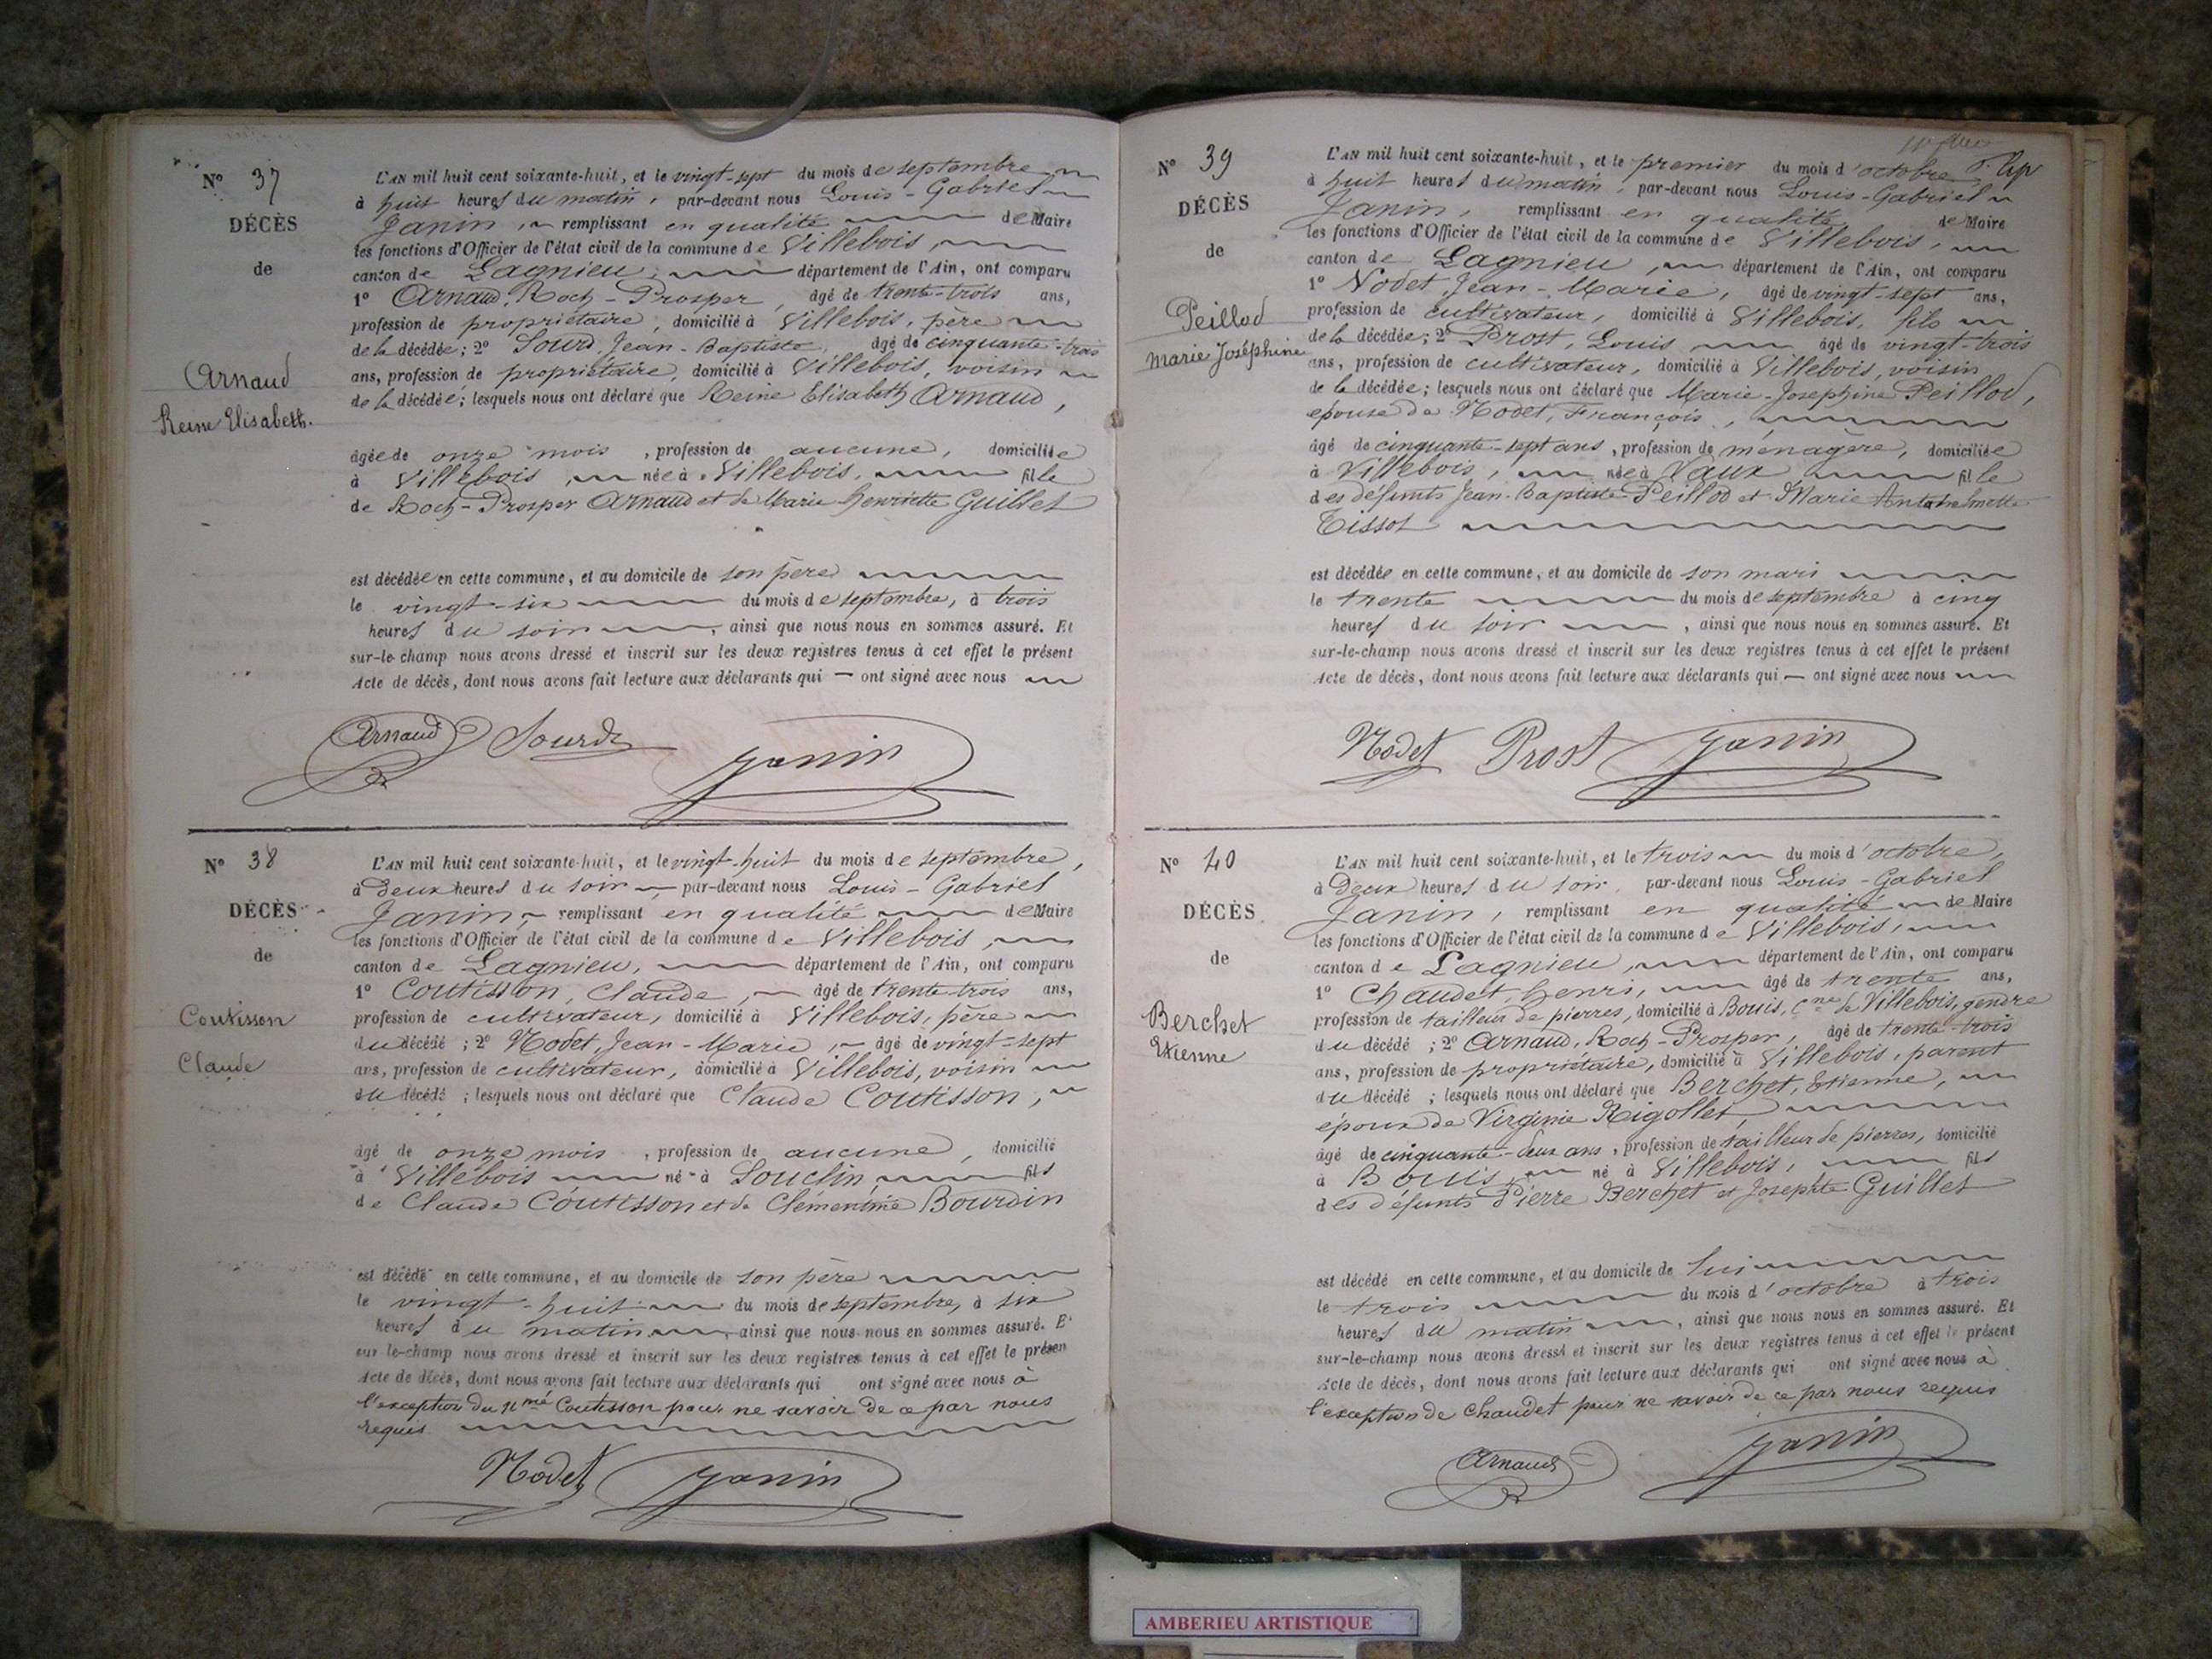 N° 37
DÉCÈS
de
Arnaud
Reine Elisabeth.
L'AN mil huit cent soixante-huit, et le vingt-sept du mois de septembre
à huit heures du matin, par-devant nous Louis-Gabriel
Janin, remplissant en qualité de Maire
les fonctions d'Officier de l'état civil de la commune de Villebois,
canton de Lagnieu, département de l'Ain, ont comparu
1° Arnaud, Roch-Prosper, âgé de trente-trois ans,
profession de propriétaire, domicilié à Villebois, père
de la décédée; 2° Sourd, Jean-Baptiste, âgé de cinquante-trois
ans, profession de propriétaire, domicilié à Villebois, voisin
de la décédée; lesquels nous ont déclaré que Reine Elisabeth Arnaud,
âgée de onze mois, profession de aucune, domiciliée
à Villebois, née à Villebois, fille
de Roch-Prosper Arnaud et de Marie Henriette Guillet
est décédée en cette commune, et au domicile de son père
le vingt-six du mois de septembre, à trois
heures du soir, ainsi que nous nous en sommes assuré. Et
sur-le-champ nous avons dressé et inscrit sur les deux registres tenus à cet effet le présent
Acte de décès, dont nous avons fait lecture aux déclarants qui — ont signé avec nous
Arnaud Sourd Janin
N° 38
DÉCÈS
de
Coutisson
Claude
L'AN mil huit cent soixante-huit, et le vingt-huit du mois de septembre,
à deux heures du soir, par-devant nous Louis-Gabriel
Janin, remplissant en qualité de Maire
les fonctions d'Officier de l'état civil de la commune de Villebois,
canton de Lagnieu, département de l'Ain, ont comparu
1° Coutisson, Claude, âgé de trente-trois ans,
profession de cultivateur, domicilié à Villebois, père
du décédé; 2° Nodet, Jean-Marie, âgé de vingt-sept
ans, profession de cultivateur, domicilié à Villebois, voisin
du décédé; lesquels nous ont déclaré que Claude Coutisson,
âgé de onze mois, profession de aucune, domicilié
à Villebois né à Souclin fils
de Claude Coutisson et de Clémentine Bourdin
est décédé en cette commune, et au domicile de son père
le vingt-huit du mois de septembre, à six
heures du matin, ainsi que nous nous en sommes assuré. E
sur le-champ nous avons dressé et inscrit sur les deux registres tenus à cet effet le présen
Acte de décès, dont nous avons fait lecture aux déclarants qui ont signé avec nous à
l'exception du n mé Coutisson pour ne savoir de ce par nous
requis
Nodet Janin
N° 39
DÉCÈS
de
Peillod
Marie Joséphine
L'AN mil huit cent soixante-huit, et le premier du mois d'octobre
à huit heures du matin, par-devant nous Louis-Gabriel
Janin, remplissant en qualité de Maire
les fonctions d'Officier de l'état civil de la commune de Villebois,
canton de Lagnieu, département de l'Ain, ont comparu
1° Nodet, Jean-Marie, âgé de vingt-sept ans,
profession de cultivateur, domicilié à Villebois, fils
de la décédée; 2° Prost, Louis âgé de vingt-trois
ans, profession de cultivateur, domicilié à Villebois, voisin
de la décédée; lesquels nous ont déclaré que Marie-Josephine Peillod,
épouse de Nodet, François,
âgé de cinquante-sept ans, profession de ménagère, domiciliée
à Villebois, née à Vaux fille
des défunts Jean-Baptiste Peillod et Marie
Tissot
est décédée en cette commune, et au domicile de son mari
le trente du mois de septembre à cinq
heures du soir, ainsi que nous nous en sommes assuré. Et
sur-le-champ nous avons dressé et inscrit sur les deux registres tenus à cet effet le présent
Acte de décès, dont nous avons fait lecture aux déclarants qui — ont signé avec nous
Nodet Prost Janin
N° 40
DÉCÈS
de
Berchet
Etienne
L'AN mil huit cent soixante-huit, et le trois du mois d'octobre,
à deux heures du soir, par-devant nous Louis-Gabriel
Janin, remplissant en qualité de Maire
les fonctions d'Officier de l'état civil de la commune de Villebois,
canton de Lagnieu, département de l'Ain, ont comparu
1° Chaudet, henri, âgé de trente ans,
profession de tailleur de pierres, domicilié à Bouis, Cne de Villebois, gendre
du décédé; 2° Arnaud, Roch-Prosper, âgé de trente-trois
ans, profession de propriétaire, domicilié à Villebois, parent
du décédé; lesquels nous ont déclaré que Berchet, Etienne,
époux de Virginie Rigollet,
âgé de cinquante-deux ans, profession de tailleur de pierres, domicilié
à Bouis, né à Villebois, fils
des défunts Pierre Berchet et Josephte Guillet
est décédé en cette commune, et au domicile de lui
le trois du mois d'octobre à trois
heures du matin, ainsi que nous nous en sommes assuré. Et
sur-le-champ nous avons dressé et inscrit sur les deux registres tenus à cet effet le présent
Acte de décès, dont nous avons fait lecture aux déclarants qui ont signé avec nous à
l'exception de Chaudet pour ne savoir de ce par nous requis
Arnaud Janin
AMBERIEU ARTISTIQUE